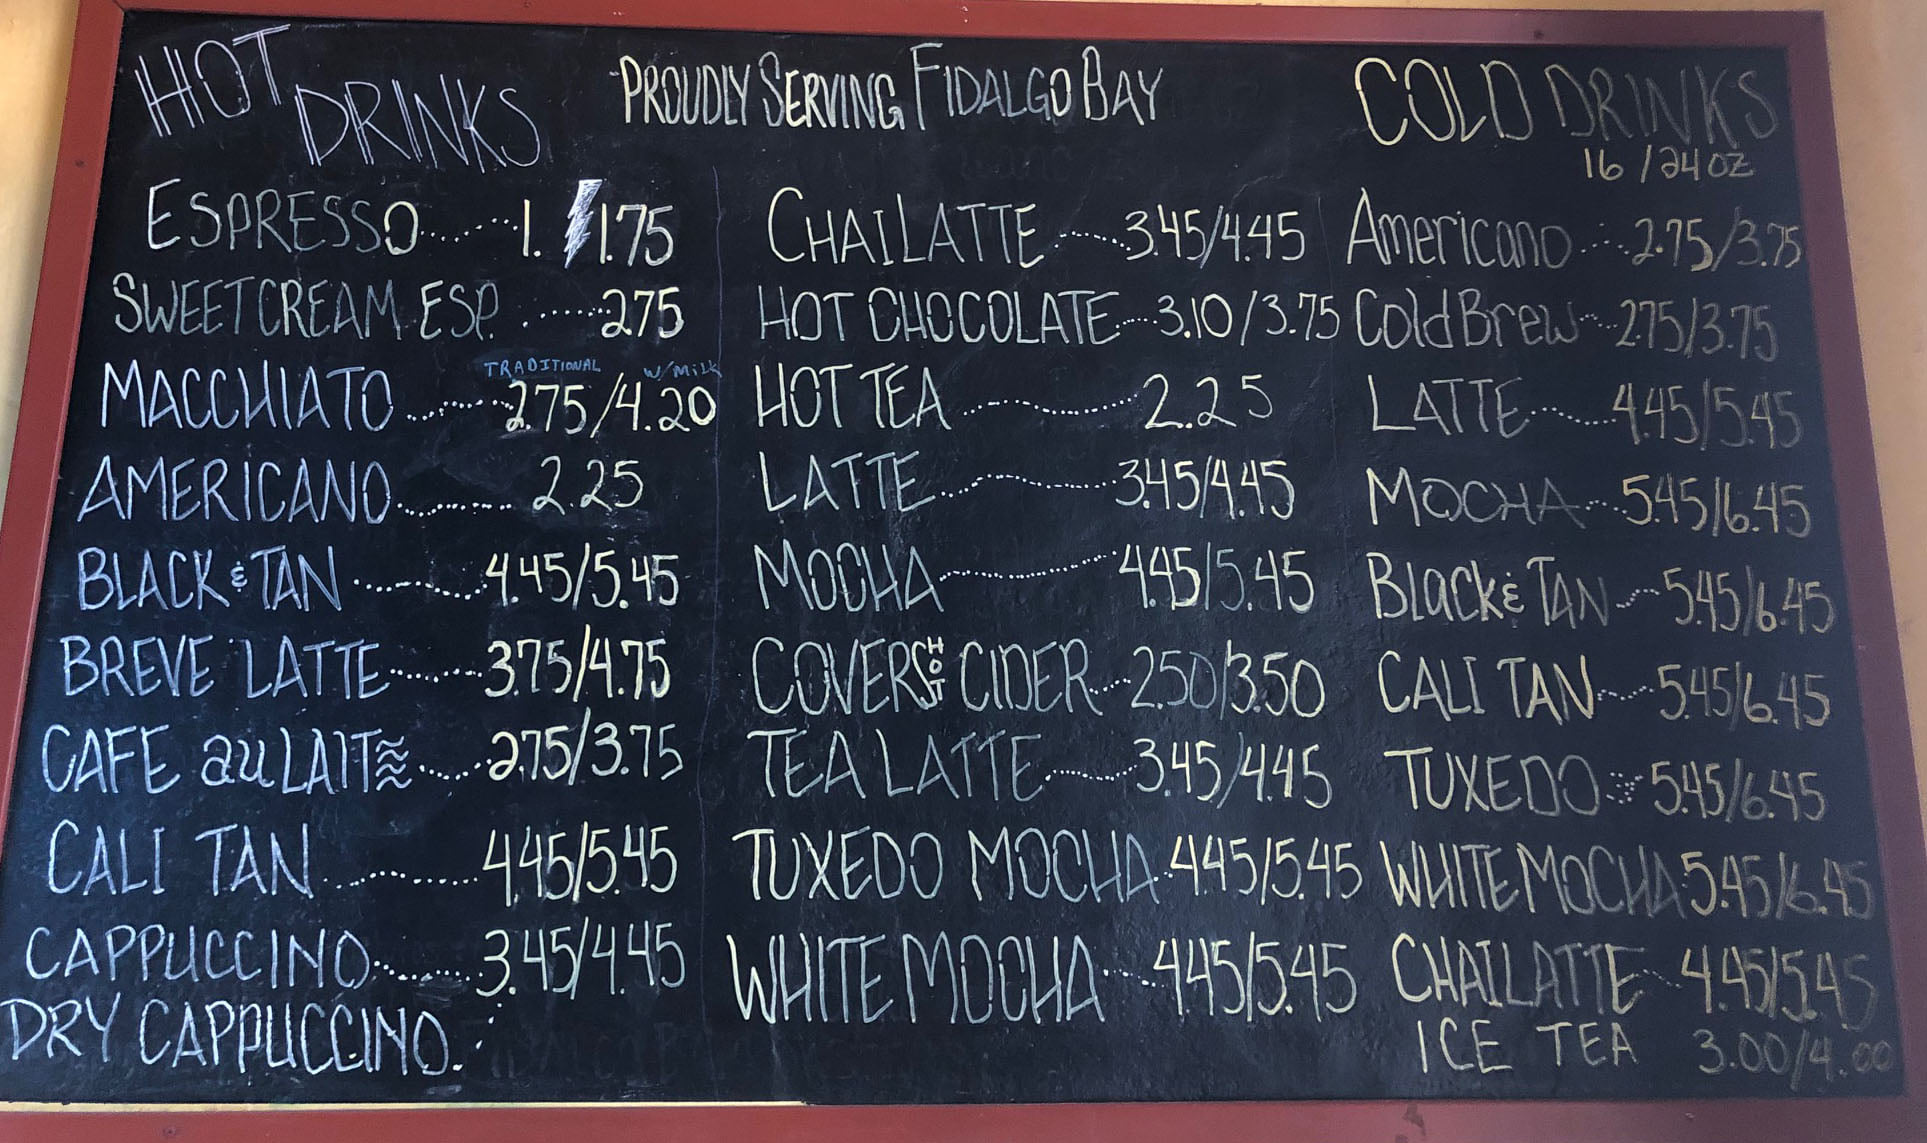 HOT DRINKS
ESPRESSO 1. 1.75
SWEET CREAM ESP. 2.75
TRADITIONAL W/Milk
MACCHIATO 2.75/4.20
AMERICANO 2.25
BLACK & TAN 4.45/5.45
BREVE LATTE 3.75/4.75
CAFE au LAIT 2.75/3.75
CALI TAN 4.45/5.45
CAPPUCCINO 3.45/4.45
DRY CAPPUCCINO
PROUDLY SERVING FIDALGO BAY
CHAI LATTE 3.45/4.45
HOT CHOCOLATE 3.10/3.75
HOT TEA 2.25
LATTE 3.45/4.45
MOCHA 4.45/5.45
COVERS HOT CIDER 2.50/3.50
TEA LATTE 3.45/4.45
TUXEDO MOCHA 4.45/5.45
WHITE MOCHA 4.45/5.45
COLD DRINKS
16/24oz
Americano 2.75/3.75
Cold Brew 2.75/3.75
LATTE 4.45/5.45
MOCHA 5.45/6.45
Black & TAN 5.45/6.45
CALI TAN 5.45/6.45
TUXEDO 5.45/6.45
WHITE MOCHA 5.45/6.45
CHAI LATTE 4.45/5.45
ICE TEA 3.00/4.00